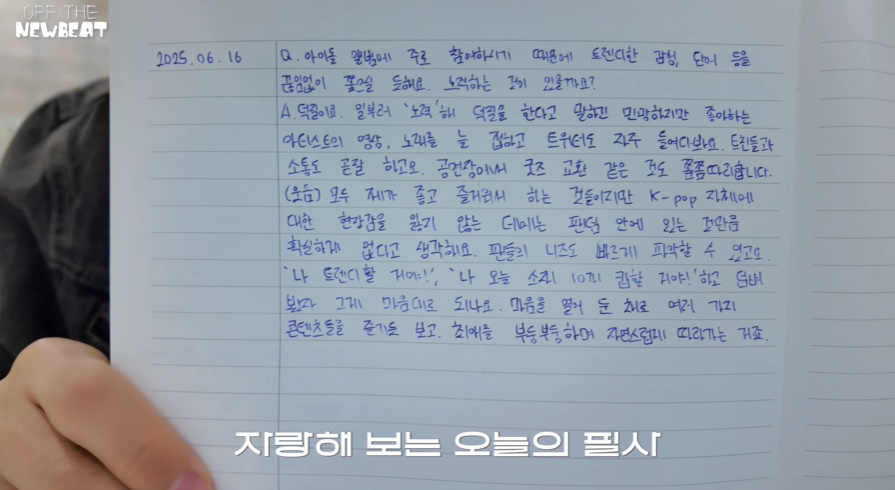 OFF THE
NEWBEAT
2025.06.16
Q. 아이돌 앨범에 주로 참여하시기 때문에 트렌디한 감성, 단어 등을
끊임없이 쫓으실 듯해요. 노력하는 것이 있을까요?
A. 덕질이요. 일부러 '노력'해 덕질을 한다고 말하긴 민망하지만 좋아하는
아티스트의 영상, 노래를 늘 접하고 트위터도 자주 들여다봐요. 트친들과
소통도 곧잘 하고요. 공연장에서 굿즈 교환 같은 것도 쫄쫌따리합니다.
(웃음) 모두 제가 좋고 즐거워서 하는 것들이지만 K-pop 자체에
대한 현장감을 잃지 않는 데에는 팬덤 안에 있는 것만큼
확실하게 없다고 생각해요. 팬들의 니즈도 빠르게 파악할 수 있고요.
'나 트렌디할 거야!', '나 오늘 소리 10개 킵할 거야!' 하고 덤벼
봤자 그게 마음대로 되나요. 마음을 열어 둔 채로 여러 가지
콘텐츠들을 즐기듯 보고, 최애를 부둥부둥하며 자연스럽게 따라가는 거죠.
자랑해 보는 오늘의 필사